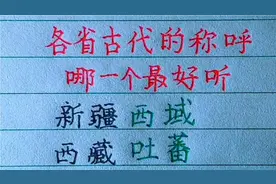 各省古代的称呼
哪一个最好听
新疆西域
西藏吐蕃